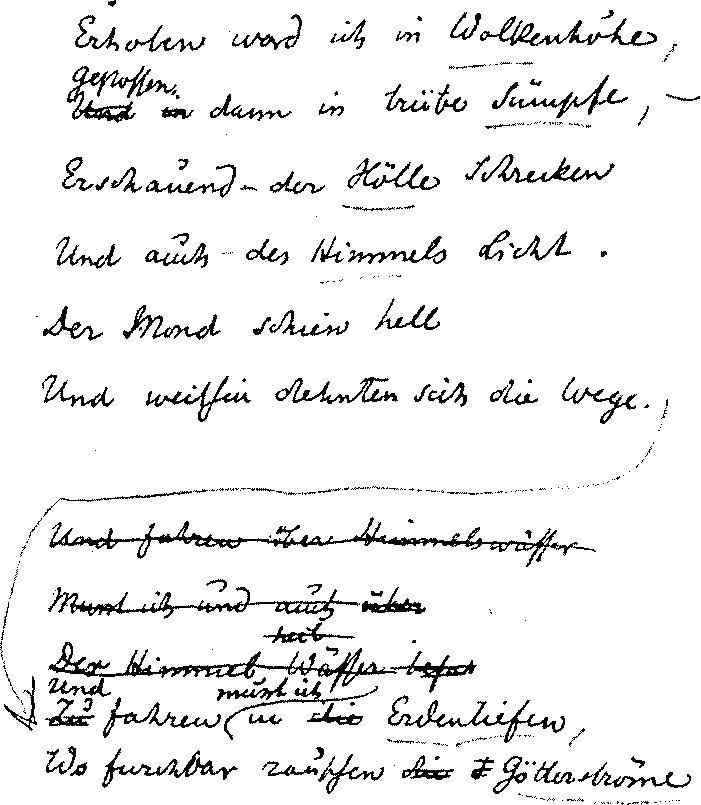 Erhoben ward ich in Wolkenhöhe,
Gestossen.
Und in dann in trübe Sümpfe, —
Erschauend – der Hölle Schrecken
Und auch – des Himmels Licht.
Der Mond schien hell
Und weithin dehnten sich die Wege.
Und fahren über Himmelswässer
Musst ich und auch über
Der Himmel Wässer
Und musst ich
Zu fahren in die Erdentiefen,
Wo furchbar rauschen die Götterströme